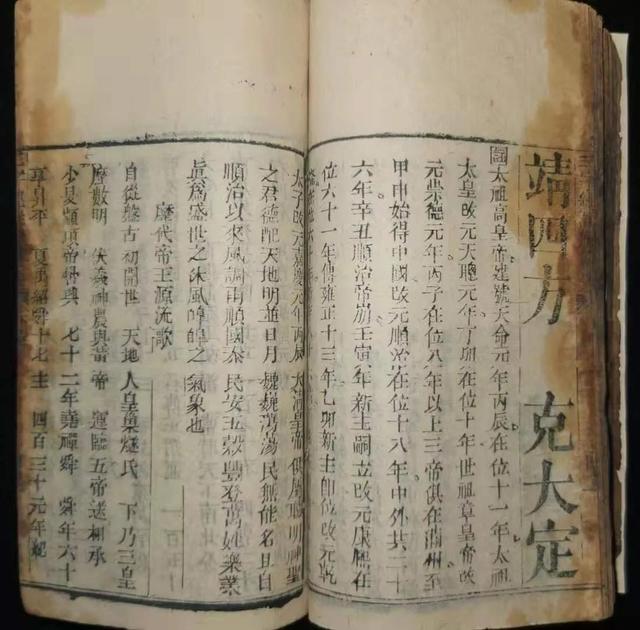 靖四方　克大定
國太祖高皇帝建號天命元年丙辰在位十一年太祖
太皇改元天聰元年丁卯在位十年世祖章皇帝改
元崇德元年丙子在位八年以上三帝俱在滿州至
甲申始得中國改元順治在位十八年中外共二十
六年辛丑順治帝崩壬寅年新主嗣立改元康熙在
位六十一年傳雍正十三年乙卯新主即位改元乾
太子改元嘉慶元年丙辰
之君德配天地明並日月巍巍蕩蕩民無能名且自
順治以來風調雨順國泰民安五穀豐登萬姓樂業
眞爲盛世之休風皥皥之氣象也
歷代帝王源流歌
自從盤古初開世　天地人皇巢燧氏　下乃三皇
歷數明　伏羲神農與黃帝　運臨五帝遞相承
少昊顓頊帝嚳典　七十二年堯禪舜　舜年六十
享昇平　夏禹紹舜十七主　四百三十元年紀